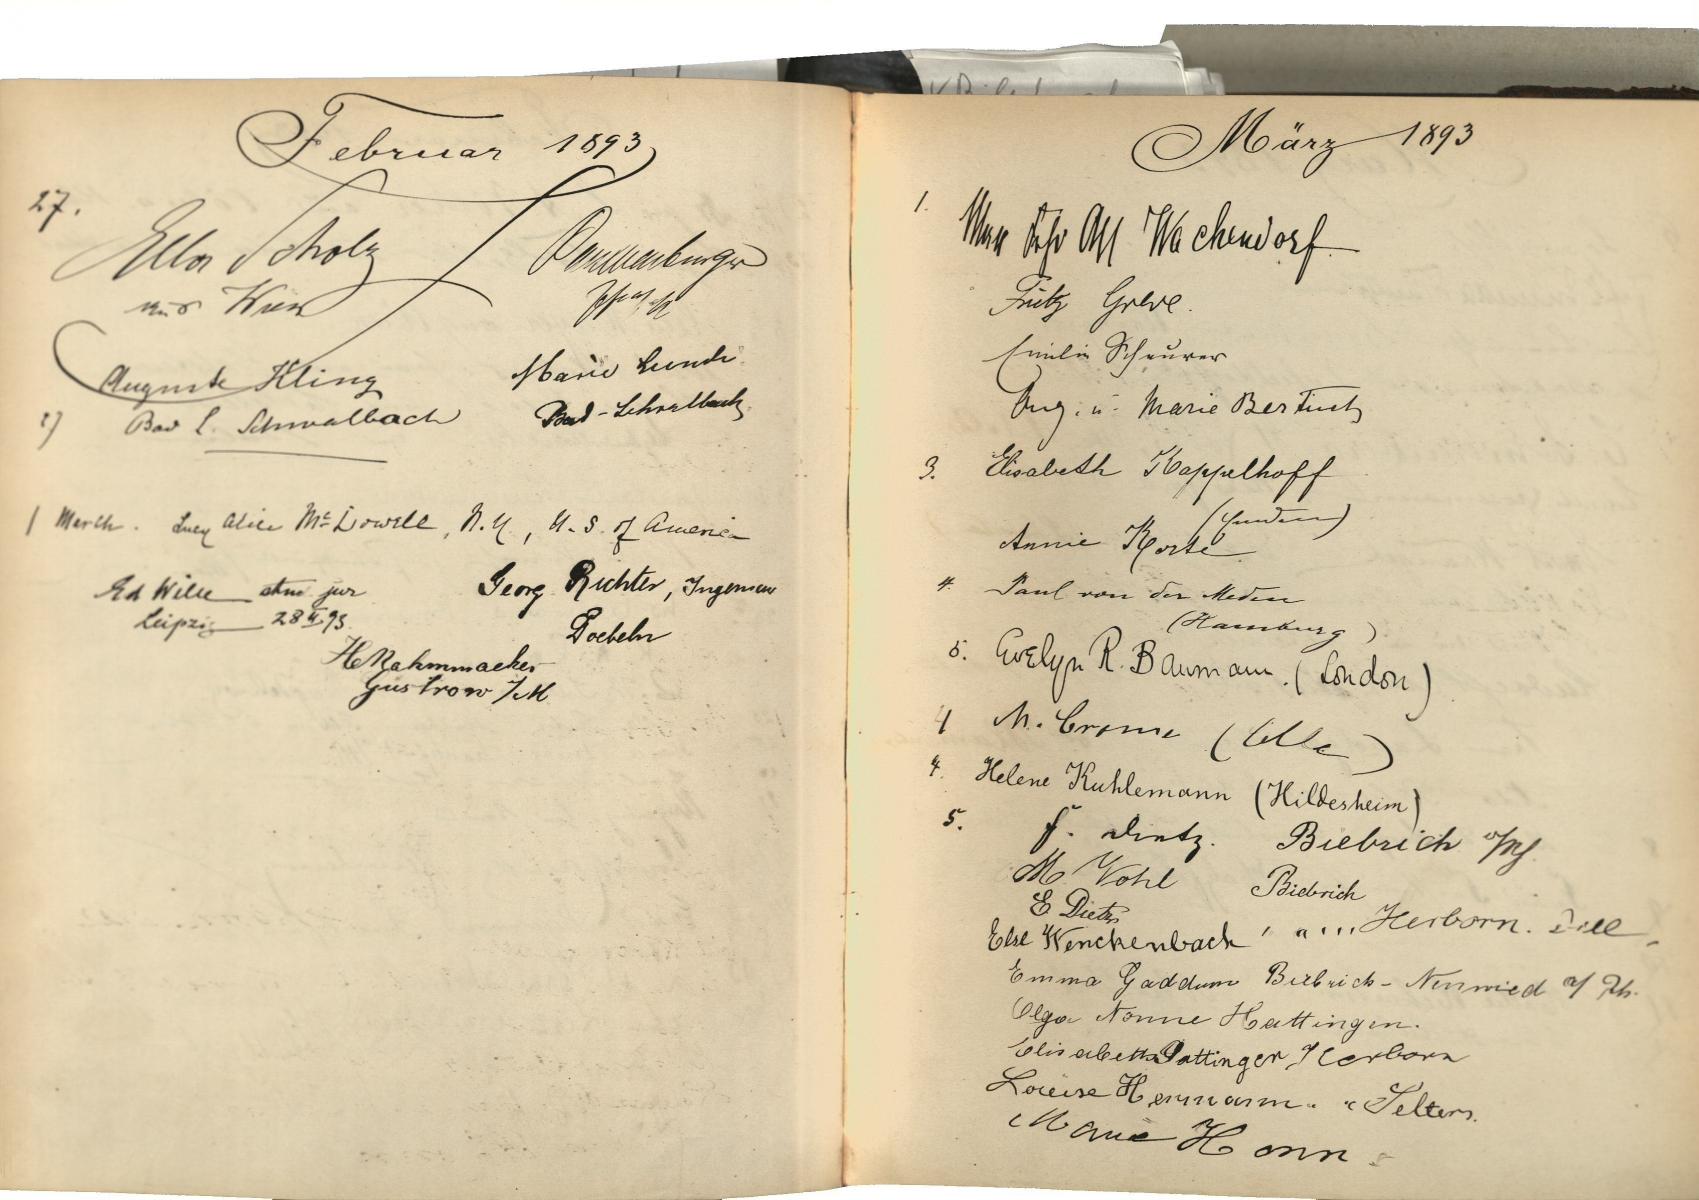 Februar 1893
27.
Ella Scholz
aus Wien
Auguste Kling
Marie
27 Bad L. Schwalbach
Bad-Schwalbach
1 March. Lucy Alice Mc Dowell, N.Y., U.S. of America
Ed Wille stud jur
Leipzig 28 II 93.
Georg Richter, Ingenieur
Doebeln
H Rahmmacker
Gustrow i/M
März 1893
1.
Wachendorf
Fritz Greve.
Emilie Scheurer
Aug. u. Marie Bertuch
3. Elisabeth Kappelhoff
(Emden)
Annie Korte
4. Paul von der Meden
(Hamburg)
5. Evelyn R. Baumann. (London)
4 M. Crome (Celle)
4. Helene Kuhlemann (Hildesheim)
5. F. Dietz. Biebrich a/Rh
M Vohl Biebrich
E Dietz
Else Wenckenbach " " ... Herborn. Dill
Emma Gaddum Biebrich-Neuwied a/Rh.
Olga Nonne Hattingen.
Elisabeth Hattinger Herborn
Louise Hermann. " Selters.
Marie Honn